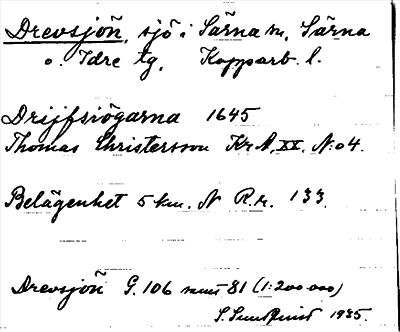 Drevsjön, sjö i Särna sn, Särna
o. Idre tg, Kopparb. l.
Drijfsiögarna 1645
Thomas Christersson Kr. A. XX. N:o 4.
Belägenhet 5 km. N R.r. 133.
Drevsjön G. 106 81 (1:200 000)
S. Sundquist 1935.